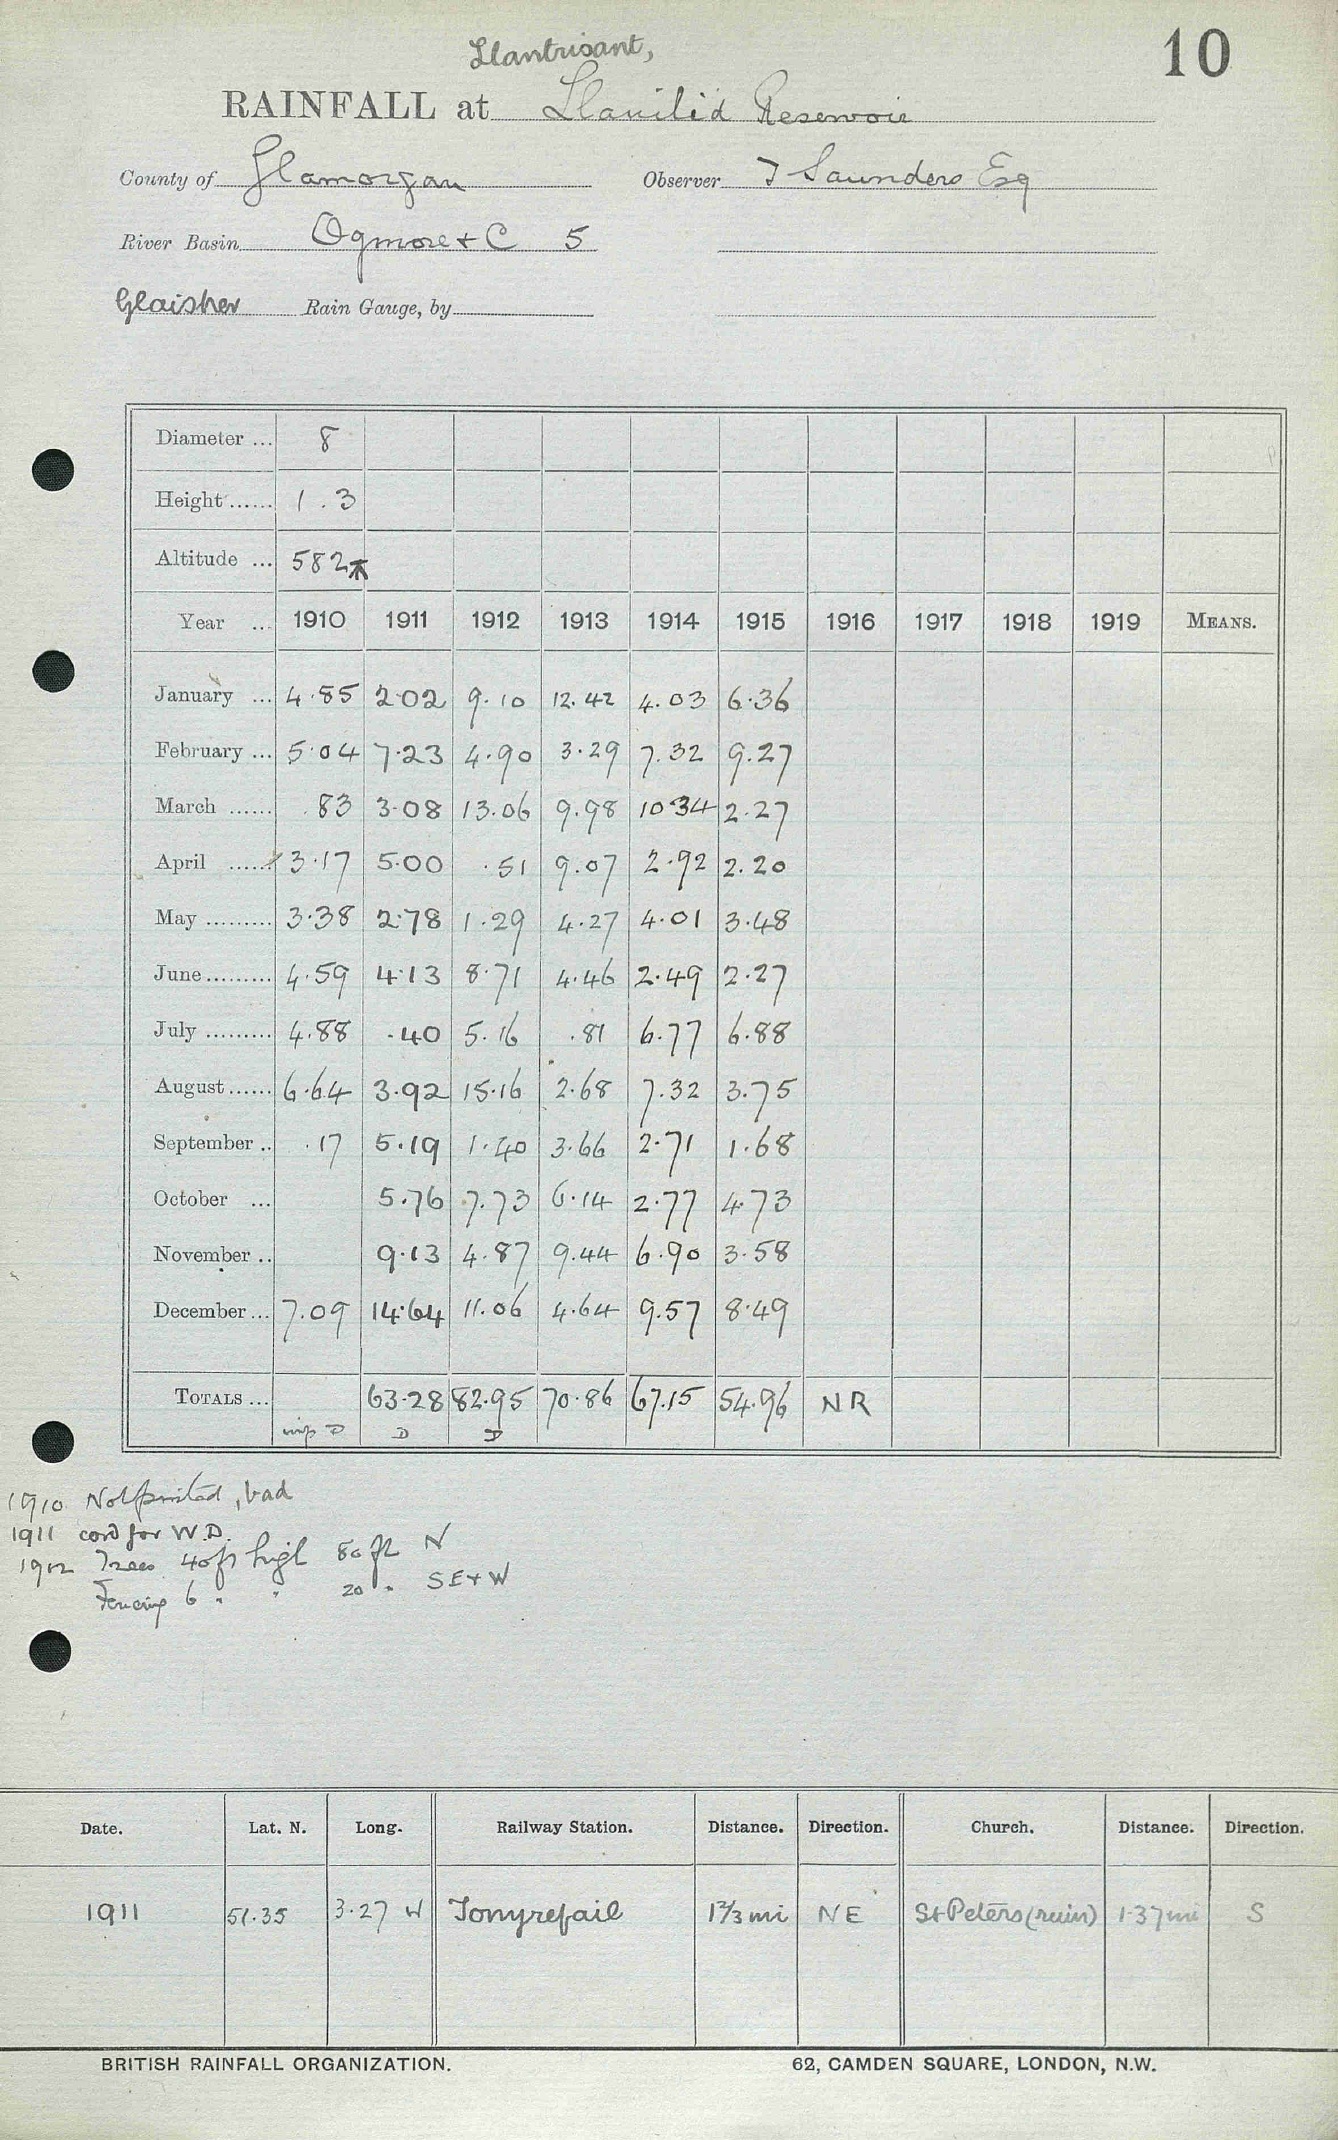 10
Llantrisant,
RAINFALL at Llanilid Reservoir
County of Glamorgan Observer J Saunders Esq
River Basin Ogmore + C 5
Glaisher Rain Gauge, by
Diameter ... 8
Height ...... 1.3
Altitude ... 582
Year ... 1910 1911 1912 1913 1914 1915 1916 1917 1918 1919 MEANS.
January ... 4.85 2.02 9.10 12.42 4.03 6.36
February ... 5.04 7.23 4.90 3.29 7.32 9.27
March ...... .83 3.08 13.06 9.98 10.34 2.27
April ...... 3.17 5.00 .51 9.07 2.92 2.20
May ......... 3.38 2.78 1.29 4.27 4.01 3.48
June ......... 4.59 4.13 8.71 4.46 2.49 2.27
July ......... 4.88 .40 5.16 .81 6.77 6.88
August ...... 6.64 3.92 15.16 2.68 7.32 3.75
September .. .17 5.19 1.40 3.66 2.71 1.68
October ... 5.76 7.73 6.14 2.77 4.73
November .. 9.13 4.87 9.44 6.90 3.58
December ... 7.09 14.64 11.06 4.64 9.57 8.49
TOTALS ... 63.28 82.95 70.86 67.15 54.96 NR
D D D
1910 Not printed, bad
1911 cord for W.D.
1912 Trees 40 ft high 80 ft N
Fencing 6 " " 20 " SE + W
Date. Lat. N. Long. Railway Station. Distance. Direction. Church. Distance. Direction.
1911 51.35 3.27 W Tonyrefail 1 2/3 mi NE St Peters (ruin) 1.37 mi S
BRITISH RAINFALL ORGANIZATION. 62, CAMDEN SQUARE, LONDON, N.W.